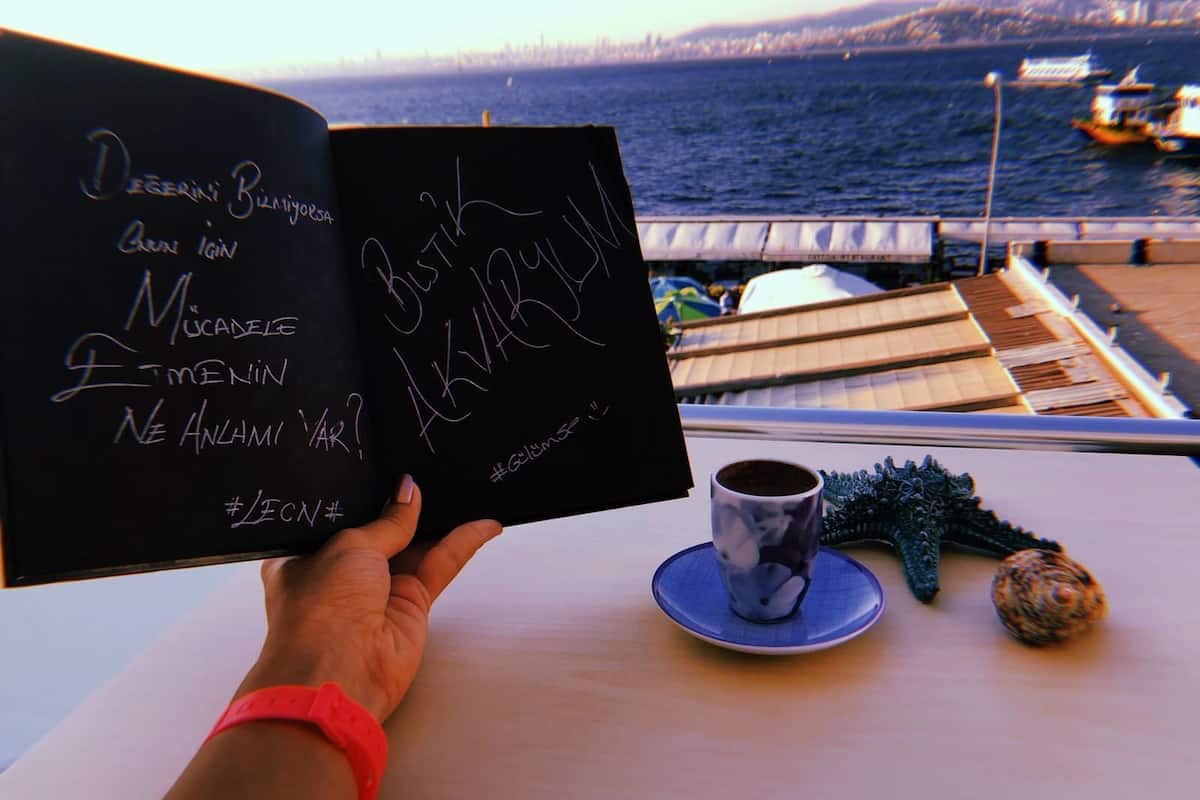 DEĞERİNİ BİLMİYORSA
ONUN İÇİN
MÜCADELE
ETMENİN
NE ANLAMI VAR?
#LEON#
BUTİK
AKVARYUM
#GÜLÜMSE